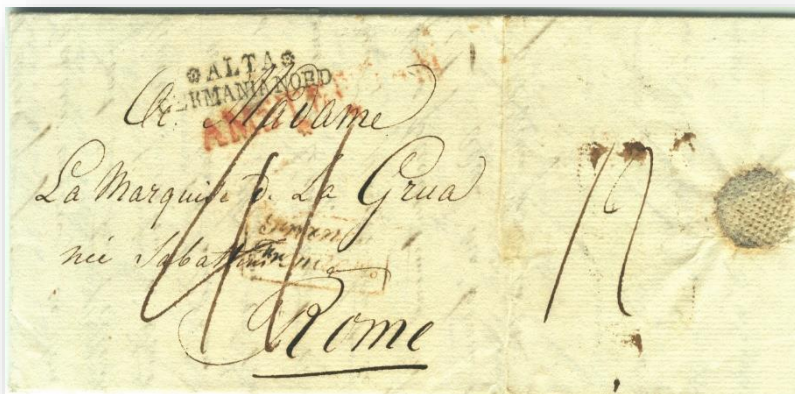 ❁ALTA❁
GERMANIE NORD
A Madame
AM
La Marquise d. La Grua
née Sabattini
Rome
12